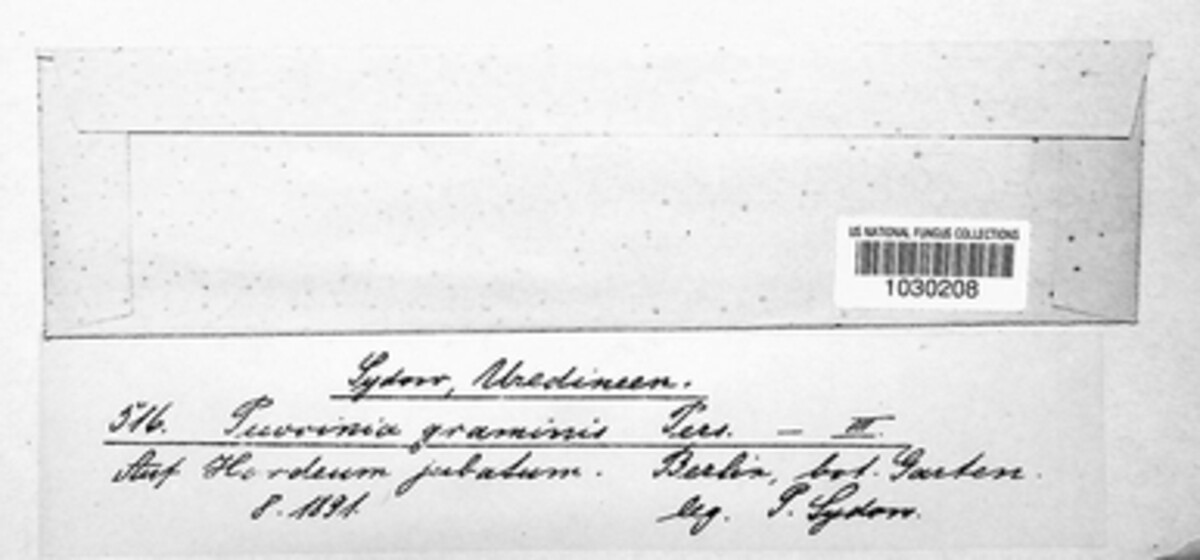 US NATIONAL FUNGUS COLLECTIONS
1030208
Sydow, Uredineen.
516. Puccinia graminis Pers. – III.
Auf Hordeum jubatum. Berlin, bot. Garten.
8. 1891. leg. P. Sydow.